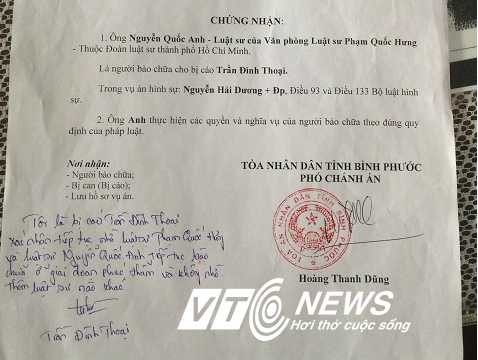 CHỨNG NHẬN:
1. Ông Nguyễn Quốc Anh - Luật sư của Văn phòng Luật sư Phạm Quốc Hưng
- Thuộc Đoàn luật sư thành phố Hồ Chí Minh.
Là người bào chữa cho bị cáo Trần Đình Thoại.
Trong vụ án hình sự: Nguyễn Hải Dương + Đp, Điều 93 và Điều 133 Bộ luật hình
sự.
2. Ông Anh thực hiện các quyền và nghĩa vụ của người bào chữa theo đúng quy
định của pháp luật.
Nơi nhận:
- Người bào chữa;
- Bị can (Bị cáo);
- Lưu hồ sơ vụ án.
TÒA NHÂN DÂN TỈNH BÌNH PHƯỚC
PHÓ CHÁNH ÁN
TÒA ÁN NHÂN DÂN TỈNH BÌNH PHƯỚC
Hoàng Thanh Dũng
Tôi là bị cáo Trần Đình Thoại
xác nhận tiếp tục nhờ luật sư Phạm Quốc Hưng
và luật sư Nguyễn Quốc Anh tiếp tục bào
chữa ở giai đoạn phúc thẩm và không nhờ
thêm luật sư nào khác
Trần Đình Thoại
VTC NEWS
Hơi thở cuộc sống